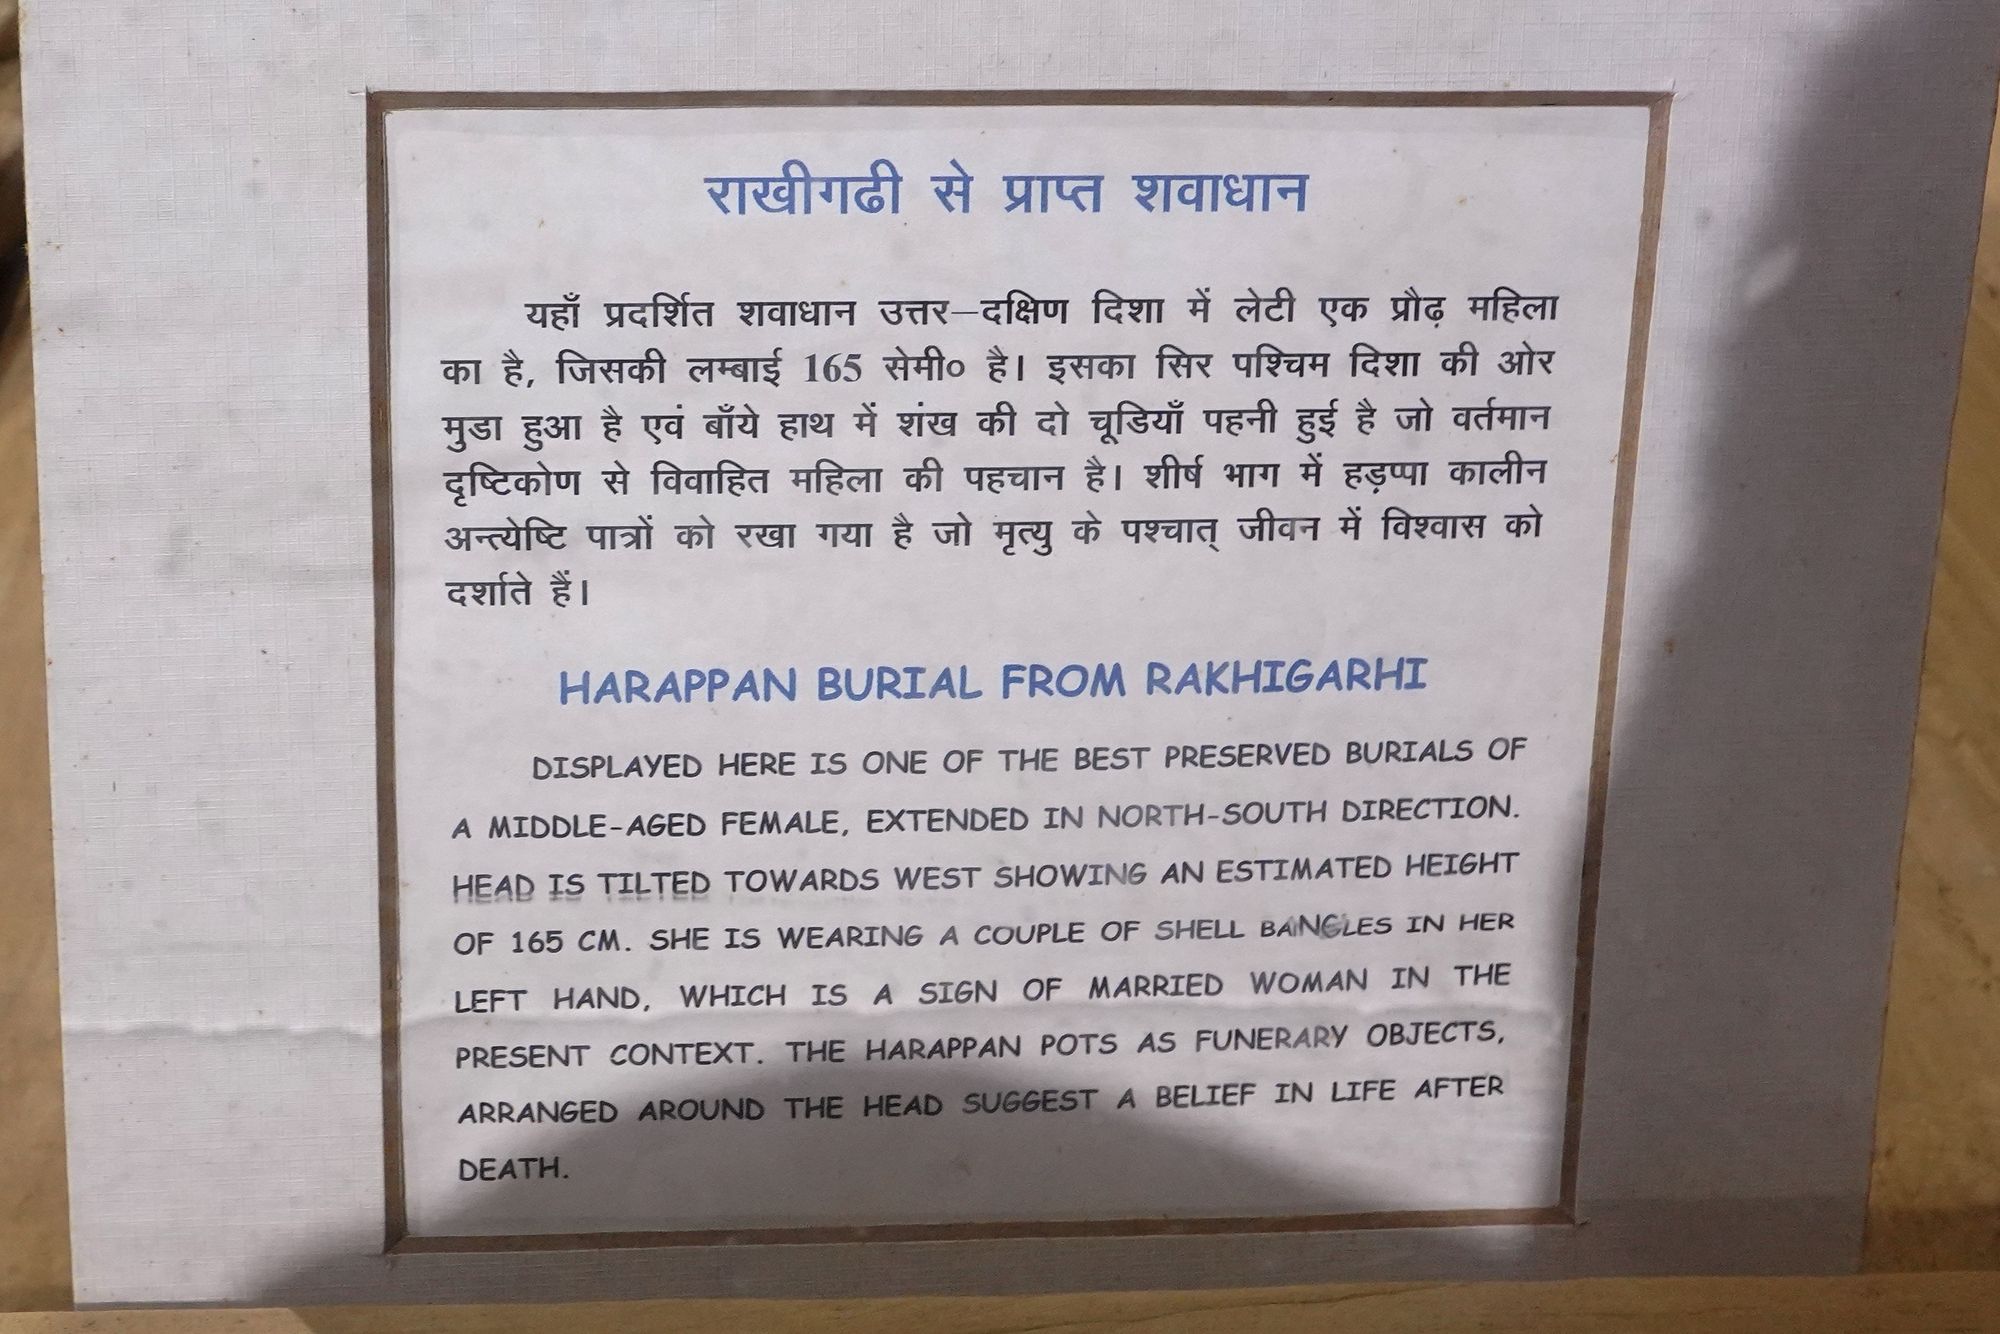 राखीगढी से प्राप्त शवाधान
यहाँ प्रदर्शित शवाधान उत्तर–दक्षिण दिशा में लेटी एक प्रौढ़ महिला
का है, जिसकी लम्बाई 165 सेमी० है। इसका सिर पश्चिम दिशा की ओर
मुडा हुआ है एवं बाँये हाथ में शंख की दो चूडियाँ पहनी हुई है जो वर्तमान
दृष्टिकोण से विवाहित महिला की पहचान है। शीर्ष भाग में हड़प्पा कालीन
अन्त्येष्टि पात्रों को रखा गया है जो मृत्यु के पश्चात् जीवन में विश्वास को
दर्शाते हैं।
HARAPPAN BURIAL FROM RAKHIGARHI
DISPLAYED HERE IS ONE OF THE BEST PRESERVED BURIALS OF
A MIDDLE-AGED FEMALE, EXTENDED IN NORTH-SOUTH DIRECTION.
HEAD IS TILTED TOWARDS WEST SHOWING AN ESTIMATED HEIGHT
OF 165 CM. SHE IS WEARING A COUPLE OF SHELL BANGLES IN HER
LEFT HAND, WHICH IS A SIGN OF MARRIED WOMAN IN THE
PRESENT CONTEXT. THE HARAPPAN POTS AS FUNERARY OBJECTS,
ARRANGED AROUND THE HEAD SUGGEST A BELIEF IN LIFE AFTER
DEATH.